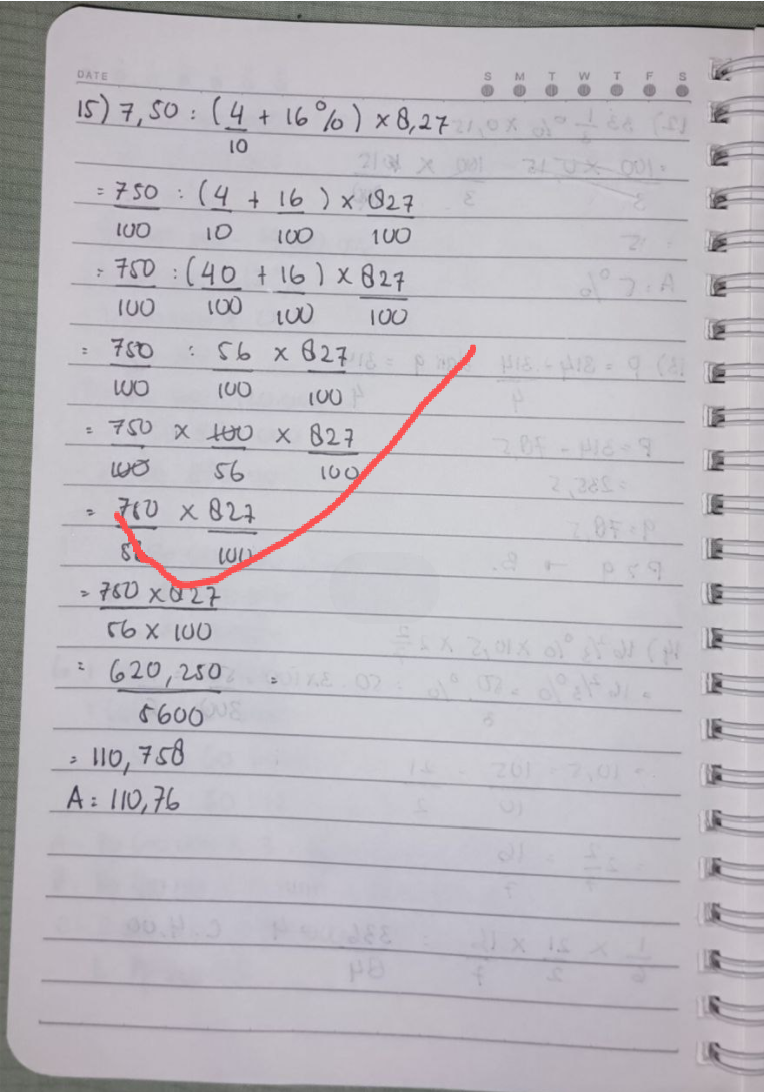 DATE S M T W T F S
15) 7,50 : (4/10 + 16%) × 8,27
= 750/100 : (4/10 + 16/100) × 827/100
= 750/100 : (40/100 + 16/100) × 827/100
= 750/100 : 56/100 × 827/100
= 750/100 × 100/56 × 827/100
= 750/56 × 827/100
= 750 × 827 / 56 × 100
= 620,250/5600 =
= 110,758
A = 110,76